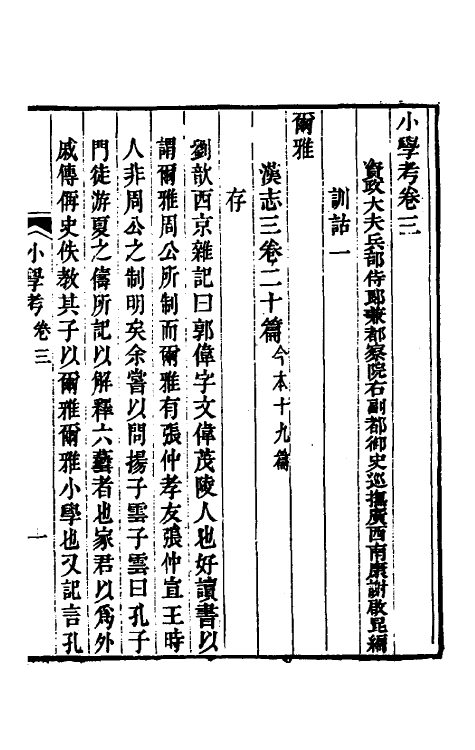 小學考卷三
資政大夫兵部侍郎兼都察院右副都御史巡撫廣西南康謝啟昆編
訓詁一
爾雅
漢志三卷二十篇今本十九篇
存
劉歆西京雜記曰郭偉字文偉茂陵人也好讀書以
謂爾雅周公所制而爾雅有張仲孝友張仲宣王時
人非周公之制明矣余嘗以問揚子雲子雲曰孔子
門徒游夏之儔所記以解釋六藝者也家君以爲外
戚傳傋史佚教其子以爾雅爾雅小學也又記言孔
小學考卷三
一